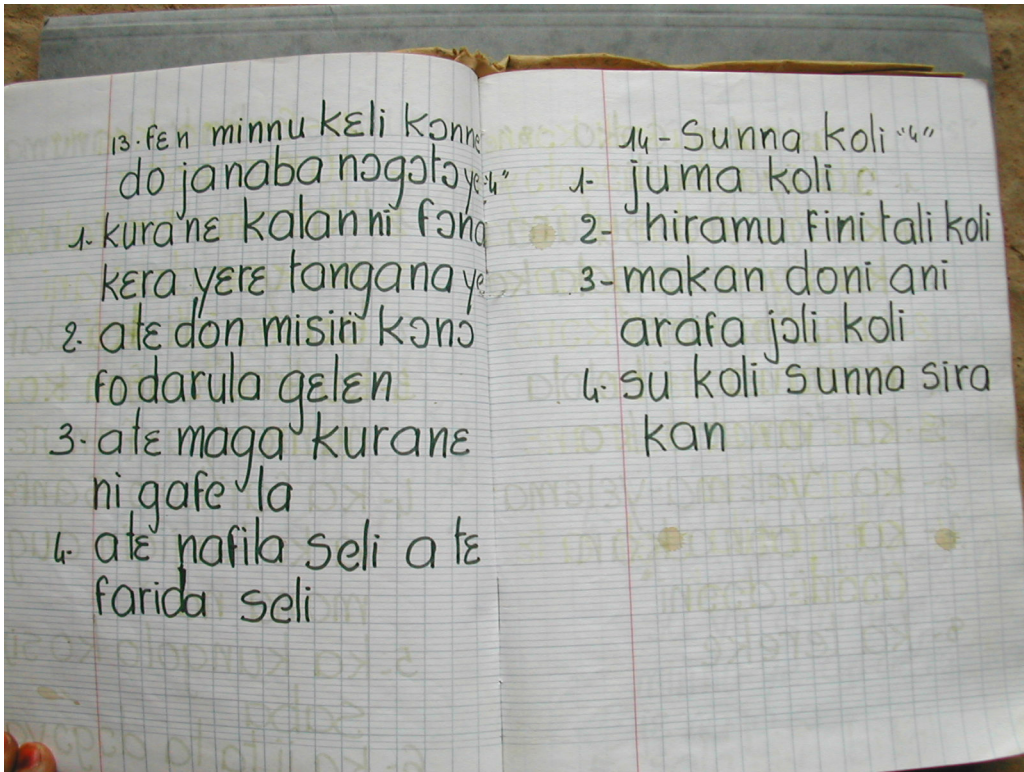 13. fɛn minnu kɛli kɔnnɛ
do janaba nɔgɔtɔ ye "4"
1. kuranɛ kalan ni fɔna
kɛra yɛrɛ tangana ye
2. atɛ don misiri kɔnɔ
fo darula gɛlɛn
3. atɛ maga kuranɛ
ni gafe la
4. atɛ nafila seli a tɛ
farida seli
14 - Sunna koli "4"
1- juma koli
2- hiramu fini tali koli
3- makan doni ani
arafa jɔli koli
4. su koli sunna sira
kan